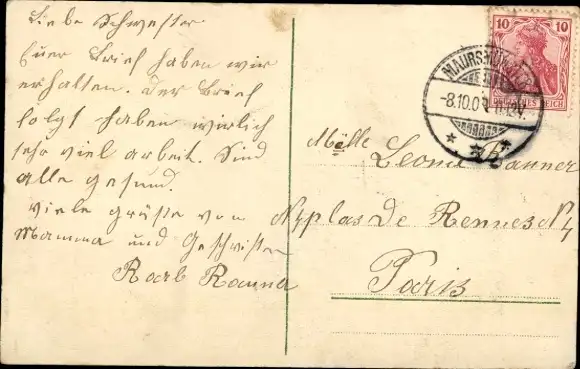 Liebe Schwester
Euer brief haben wir
erhalten. Der brief
folgt haben wirlich
sehr viel arbeit. Sind
alle gesund.
Viele grüsse von
Mamma und Geschwister
10 10
DEUTSCHES REICH
-8.10.0
Mslle
Leonie
Plas De Rennes N
Paris